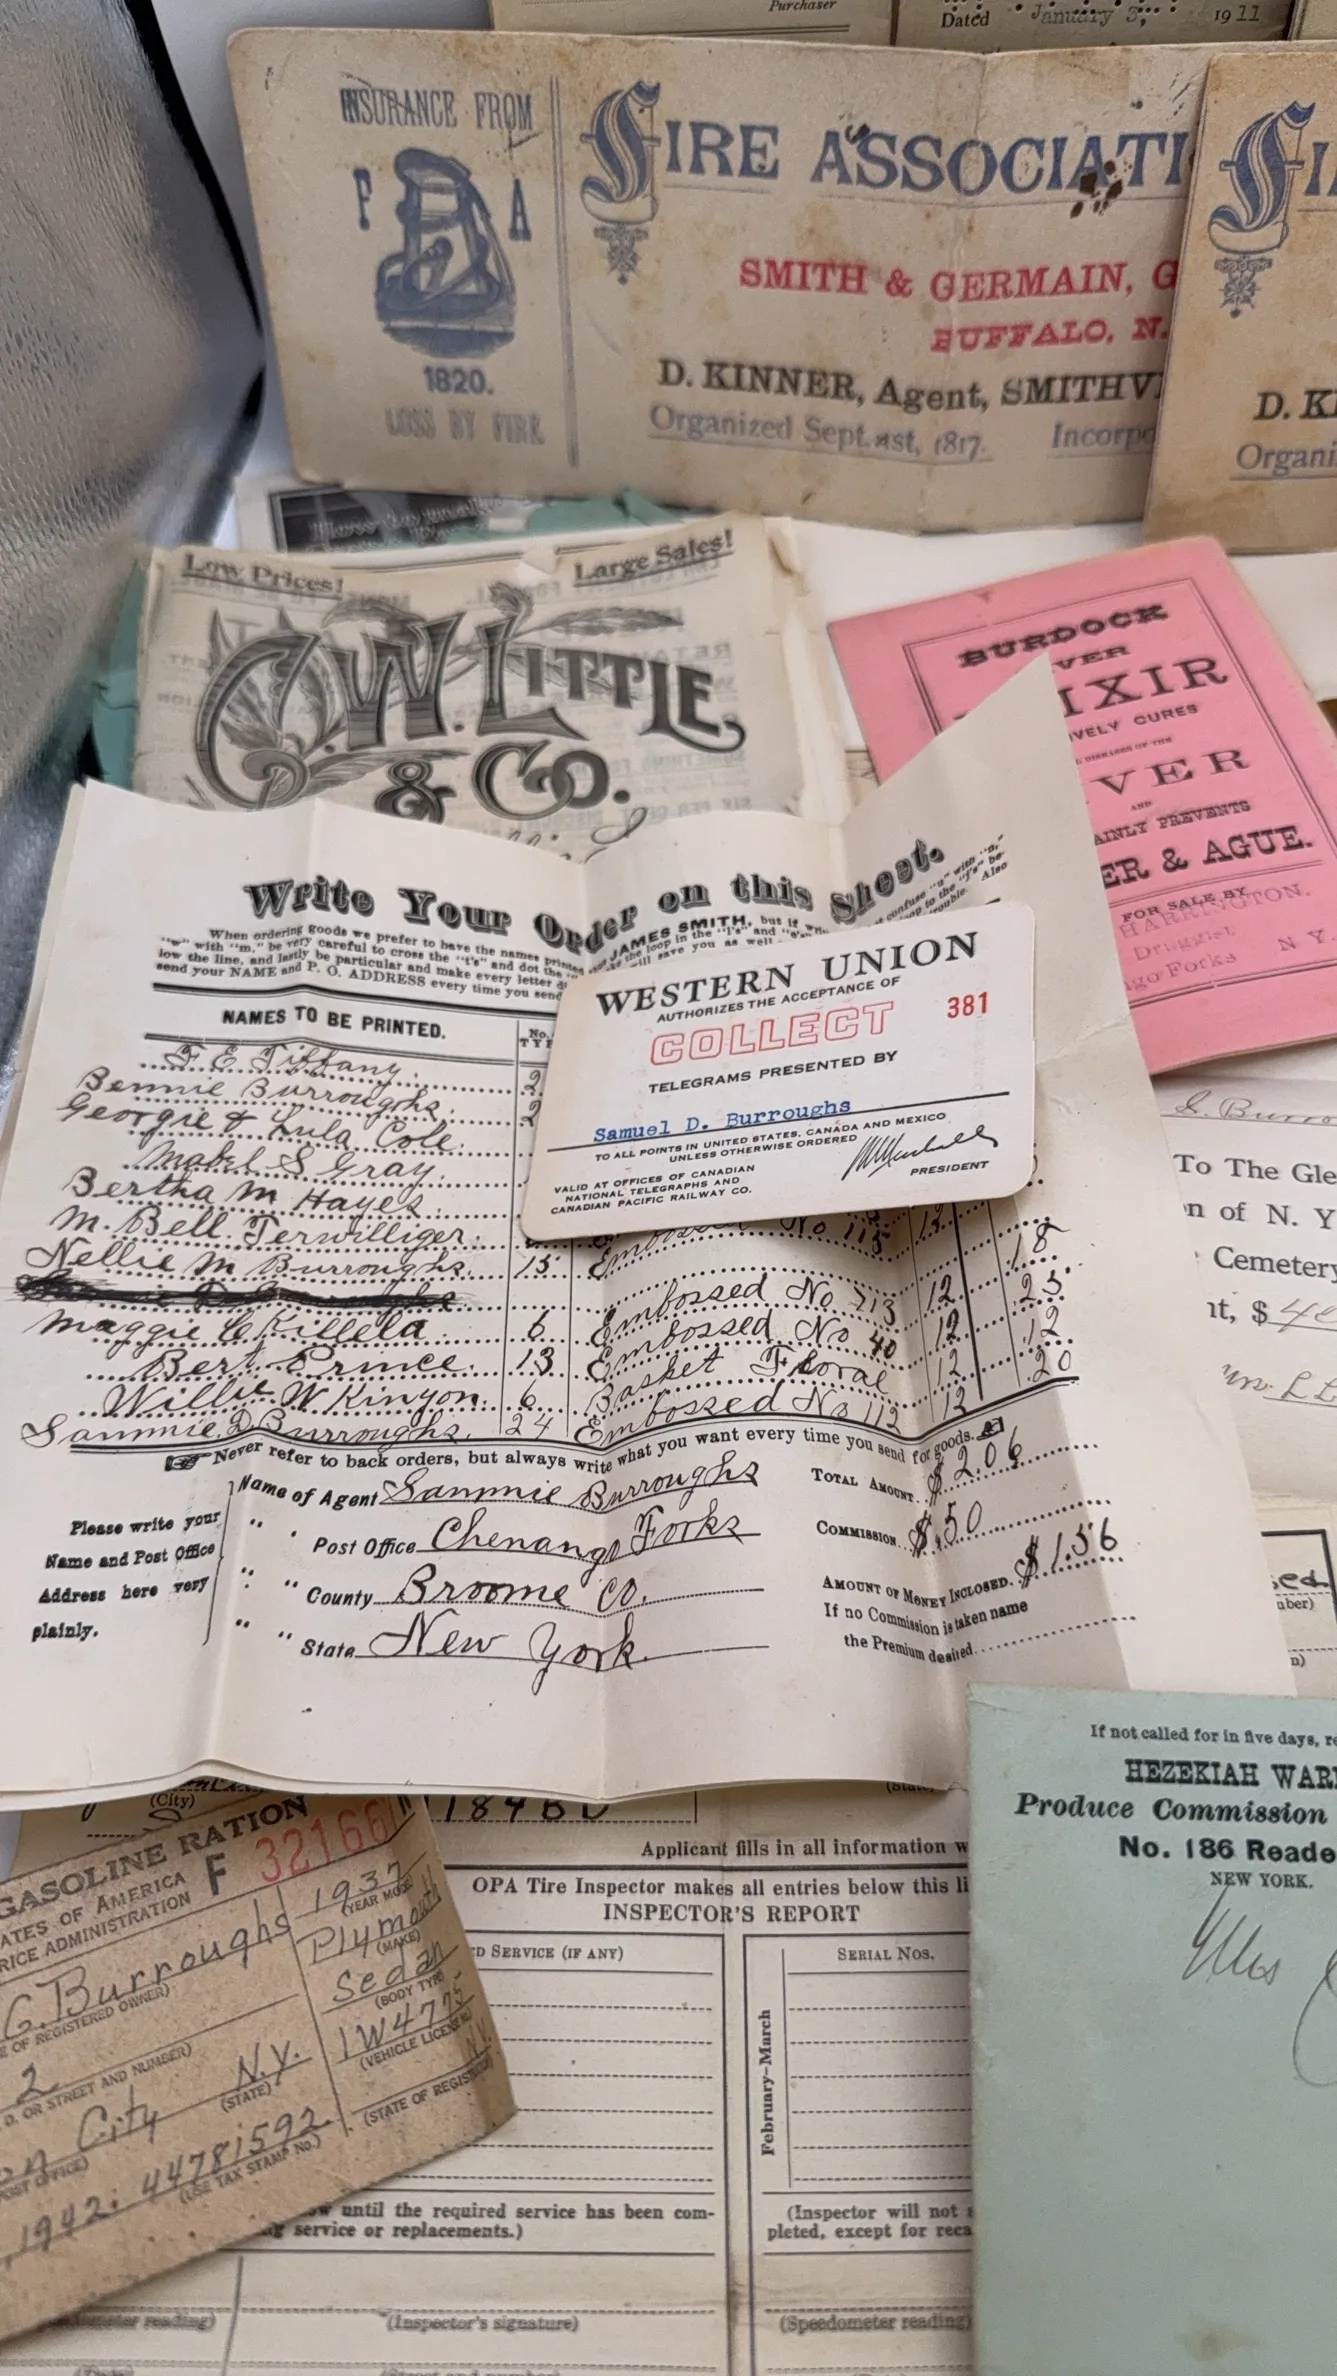 Purchaser
Dated January 3, 1911
INSURANCE FROM
F A
1820.
LOSS BY FIRE
FIRE ASSOCIATI
SMITH & GERMAIN, G
BUFFALO, N.
D. KINNER, Agent, SMITHV
Organized Sept. 1st, 1817. Incorpo
FI
D. KI
Organi
Low Prices!
Large Sales!
C.W. LITTLE
& CO.
BURDOCK
VER
IXIR
VELY CURES
DISEASES OF THE
VER
AND
AINLY PREVENTS
ER & AGUE.
FOR SALE BY
HARRINGTON.
Druggist
ngo Forks N Y.
Write Your Order on this Sheet.
When ordering goods we prefer to have the names printed
JAMES SMITH, but if
"w" with "m," be very careful to cross the "t's" and dot the
the loop in the "l's" and
low the line, and lastly be particular and make every letter
will save you as well
send your NAME and P. O. ADDRESS every time you send
confuse "u" with "n,"
loop to the "f's" be-
trouble. Also
NAMES TO BE PRINTED.
No.
F E Tiffany 2
Bennie Burroughs. 2
Georgie & Lula Cole.
Mabel S Gray.
Bertha M Hayes
M. Bell. Terwilliger.
Embossed No 115 12
Nellie M Burroughs. 15 18
Embossed No 213 12 25
Maggie C Killela 6 Embossed No 40 12 12
Bert Prince. 13 Basket Floral 12 20
Willie W Kinyon. 6 Embossed No 112 12
Sammie D Burroughs. 24
Never refer to back orders, but always write what you want every time you send for goods.
Please write your
Name and Post Office
Address here very
plainly.
Name of Agent Sammie Burroughs
" " Post Office Chenango Forks
" " County Broome Co.
" " State New York.
TOTAL AMOUNT. $2.06
COMMISSION. $.50
AMOUNT OF MONEY INCLOSED. $1.56
If no Commission is taken name
the Premium desired
WESTERN UNION
AUTHORIZES THE ACCEPTANCE OF
COLLECT 381
TELEGRAMS PRESENTED BY
Samuel D. Burroughs
TO ALL POINTS IN UNITED STATES, CANADA AND MEXICO
UNLESS OTHERWISE ORDERED
VALID AT OFFICES OF CANADIAN
NATIONAL TELEGRAPHS AND
CANADIAN PACIFIC RAILWAY CO.
PRESIDENT
S. Burro
To The Gle
n of N. Y
Cemetery
nt, $
(City)
GASOLINE RATION
ATES OF AMERICA
RICE ADMINISTRATION
F 32166
G. Burroughs
E OF REGISTERED OWNER)
2
D. OR STREET AND NUMBER)
City N.Y.
(STATE)
POST OFFICE)
1942: 44781592
(USE TAX STAMP No.)
1937
(YEAR MODEL)
Plymouth
(MAKE)
Sedan
(BODY TYPE)
1W4775
(VEHICLE LICENSE)
N.Y.
(STATE OF REGIST
Applicant fills in all information w
OPA Tire Inspector makes all entries below this li
INSPECTOR'S REPORT
D SERVICE (IF ANY)
SERIAL NOS.
February–March
until the required service has been com-
service or replacements.)
(Inspector will not
pleted, except for reca
(Speedometer reading)
(Inspector's signature)
If not called for in five days, re
HEZEKIAH WAR
Produce Commission
No. 186 Reade
NEW YORK.